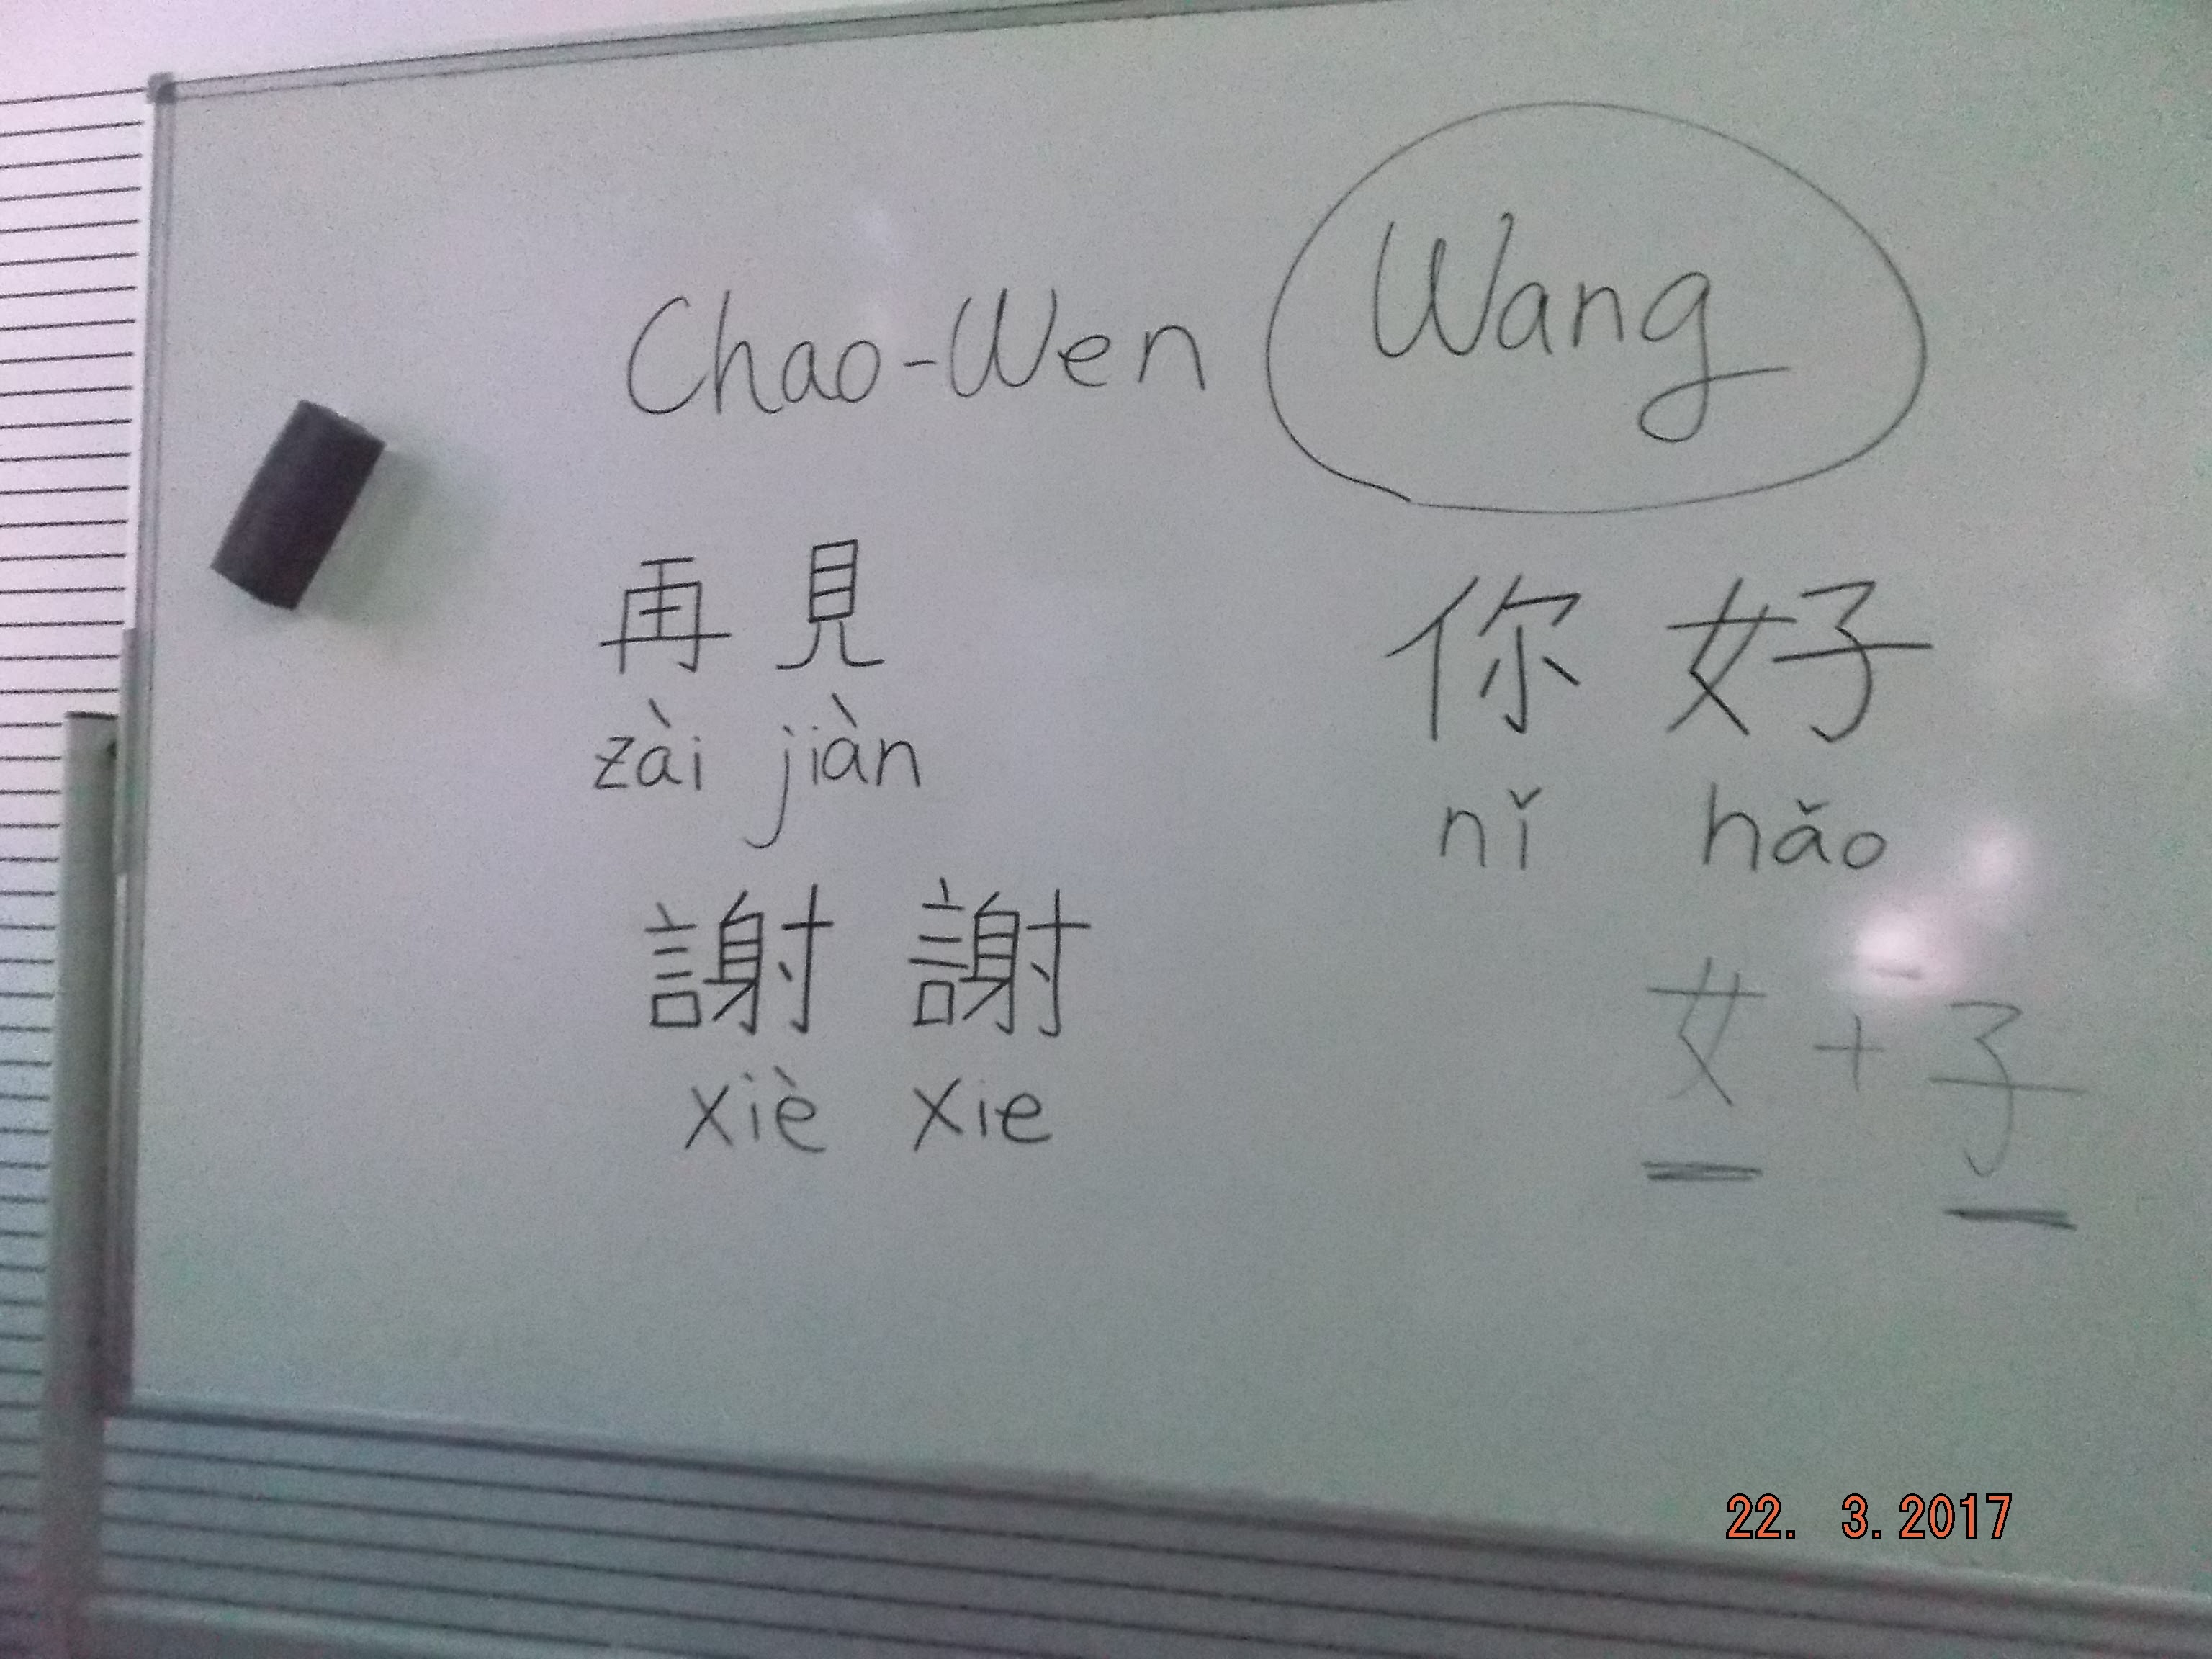 Chao-Wen Wang
再見
zài jiàn
謝謝
xiè xie
你好
nǐ hǎo
女+子
22. 3.2017